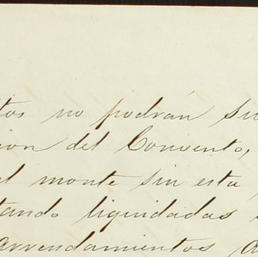 tos no podrán su
ion del Convento,
el monte sin esta
tando liquidadas
arrendamientos a